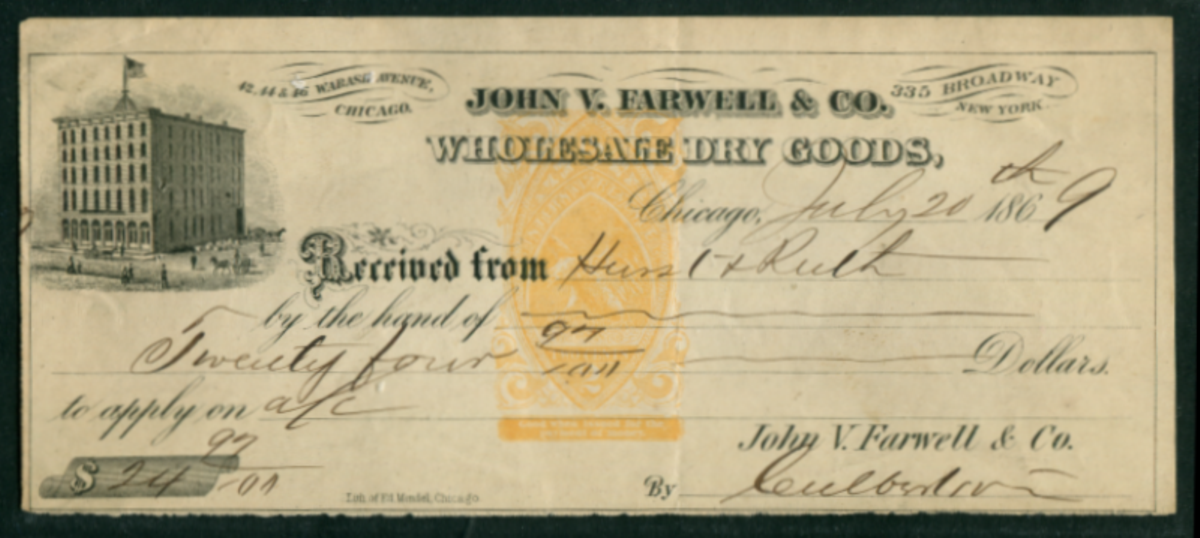 42, 44 & 46 WABASH AVENUE,
CHICAGO.
JOHN V. FARWELL & CO.
335 BROADWAY
NEW YORK
WHOLESALE DRY GOODS,
Chicago, July 20th 1869
Received from Hurst & Ruth
by the hand of
Twenty four 97/100 Dollars.
to apply on a/c
John V. Farwell & Co.
$ 24 97/100
By Culbertson
Lith. of Ed. Mendel, Chicago
Good when issued for the
payment of money